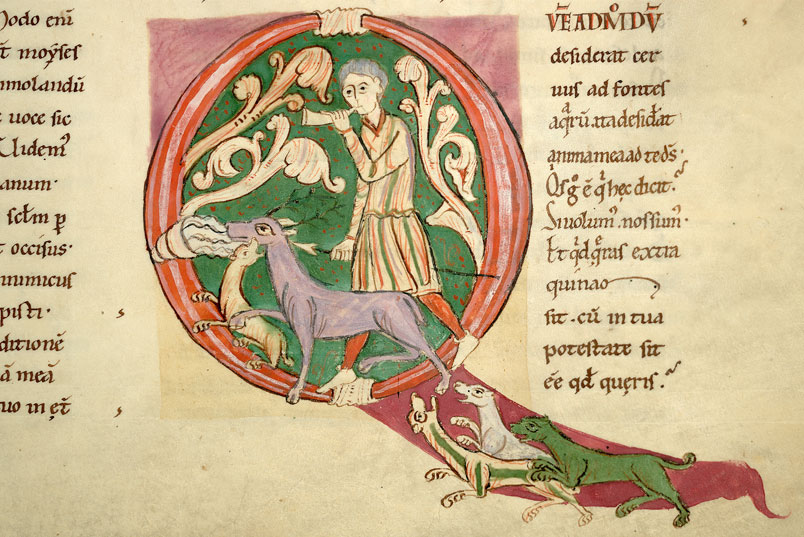 Modo eni
t moyses
mmolandū
uoce sic
Uidem᷒
anum·
scl̄m p
t occisus·
numicus
pisti·
ditionē
ā meā
uo in et̄
VĒADM̊DV̄
desiderat cer
uus ad fontes
aqͣrū. ita desid̄at
anima mea ad te ds̄·
Qs̊g ē q̍ hęc dicit.
Si uolum᷒. nos sum᷒.
Et q̍d q̊ras extra
qui na
sit. cū in tua
potestate sit
ēē qd̄ queris.